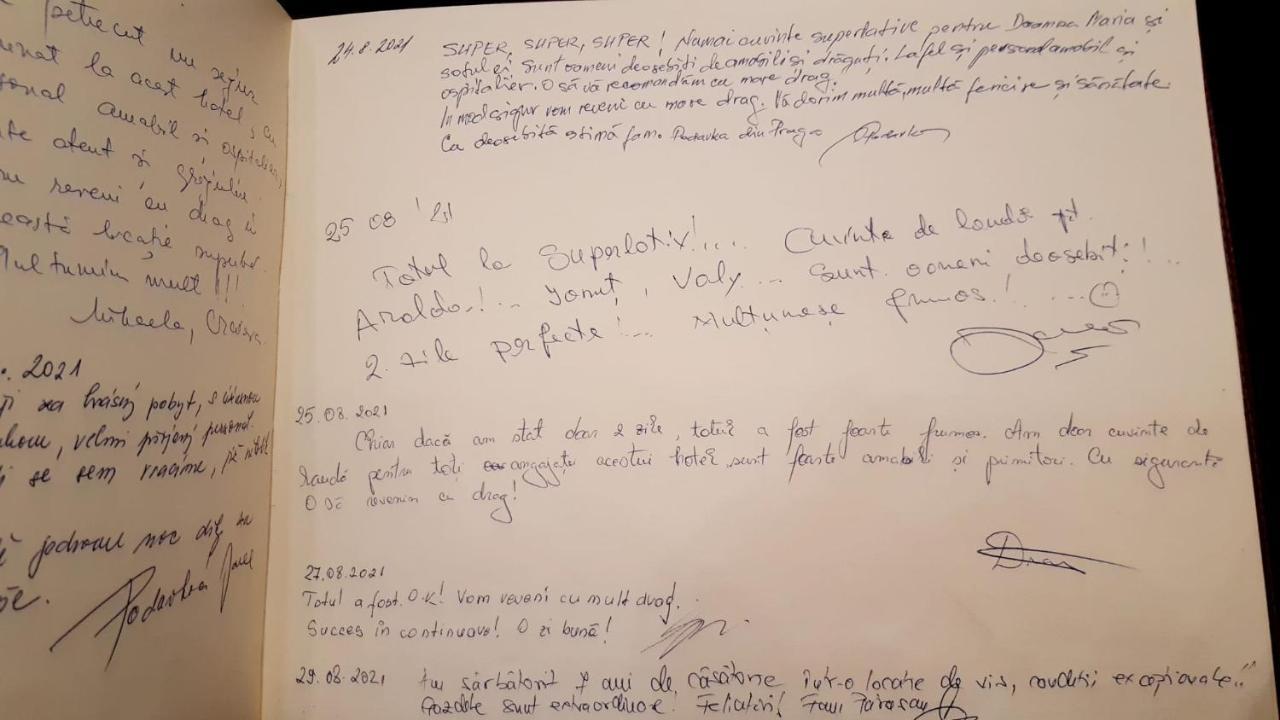 petrecut un sejur
minunat la acest hotel, cu
personal amabil si ospitalier,
atent si grijuliu.
reveni cu drag in
această locație superbă.
Mulțumim mult !!!
Mihaela, Craiova
2021
za krásný pobyt, s
velmi příjemný personál.
se sem vracíme,
jednou moc díky za
24.8.2021 SUPER, SUPER, SUPER! Numai cuvinte superlative pentru Doamna Maria și
soțul ei. Sunt oameni deosebiți de amabili și drăguți. La fel și personal amabil și
ospitalier. O să vă recomandăm cu mare drag.
In mod sigur vom reveni cu mare drag. Vă dorim multă, multă fericire și sănătate.
Cu deosebită stimă fam. Podavka din Praga
25 08 '21
Totul la Superlativ!.... Cuvinte de laudă pt.
Analda!... Ionuț, Valy... Sunt oameni deosebiți!...
2 zile perfecte!... Mulțumesc frumos!....☺
25.08.2021
Chiar dacă am stat doar 2 zile, totul a fost foarte frumos. Am doar cuvinte de
laudă pentru toți angajații acestui hotel, sunt foarte amabili și primitori. Cu siguranță
O să revenim cu drag!
27.08.2021
Totul a fost O.K! Vom reveni cu mult drag.
Succes în continuare! O zi bună!
29.08.2021 Am sărbătorit 7 ani de căsătorie într-o locație de vis, condiții excepționale..
Gazdele sunt extraordinare. Felicitări! Fam